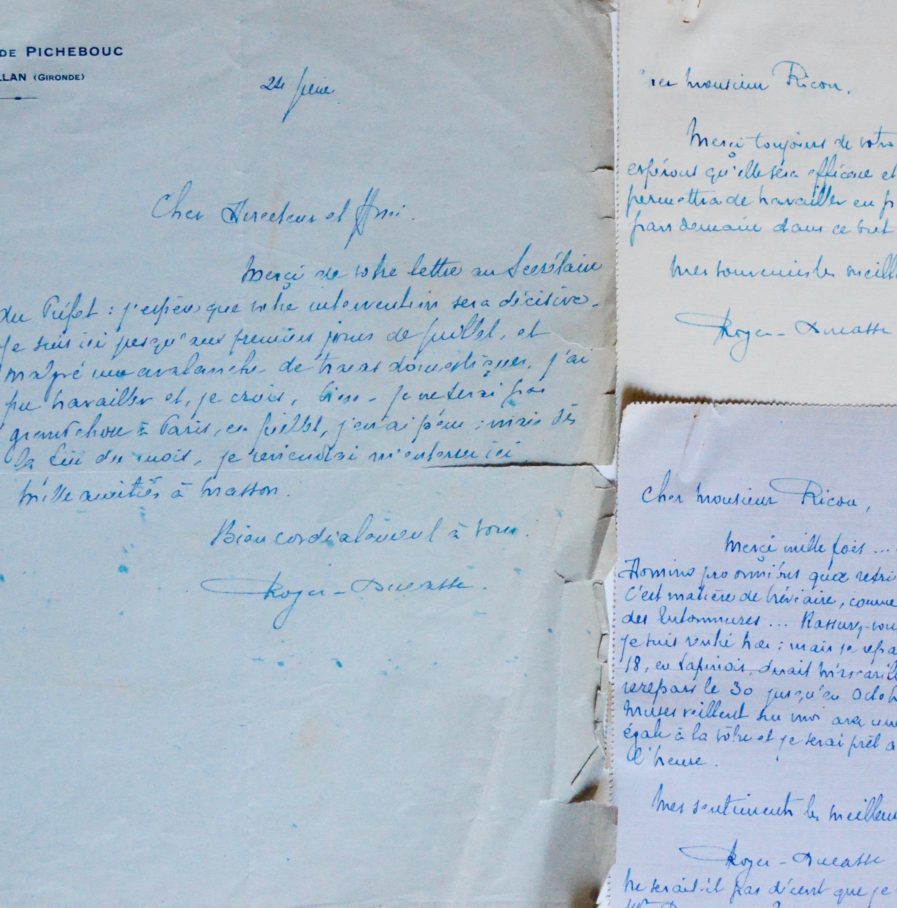 DE PICHEBOUC
LLAN (GIRONDE)
24
Cher Directeur et Ami.
Merci de votre lettre au Secrétaire
du Préfet : j'espère que votre intervention sera décisive.
Je suis ici jusqu'aux premiers jours de juillet, et
malgré une avalanche de tracas domestiques, j'ai
pu travailler et, je crois, bien. Je ne serai pas
à Paris, en juillet, j'en ai peur : mais dès
la fin du mois, je reviendrai m'enterrer ici.
Mille amitiés à Masson.
Bien cordialement à vous.
Roger-Ducasse.
monsieur Ricou,
Merci toujours de votre
espérons qu'elle sera efficace et
permettra de travailler en p
pars demain dans ce but
Mes souvenirs les meille
Roger-Ducasse
Cher Monsieur Ricou,
Merci mille fois ...
C'est matière de bréviaire, comme
des Entommures ... Rassurez-vou
je suis rentré hier : mais je repa
18, en
le 30 jusqu'en Octob
muses veillent sur moi avec une
égale à la vôtre et je serai prêt à
l'heure.
Mes sentiments les meilleu
Roger-Ducasse
Ne serait-il pas décent que je